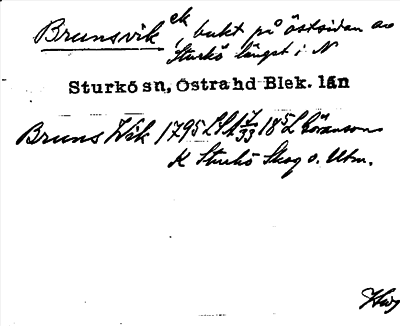 Brunsvik ek, bukt på östsidan av
Sturkö längst i N
Sturkö sn, Östra hd Blek. län
Bruns Wik 1795 LSA 17/33 185 L Göransson
K Sturkö Skog o. Utm.